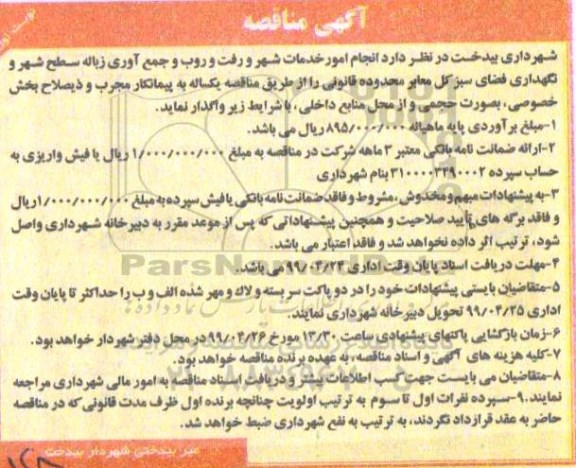 آگهی مناقصه
نوبت اول
شهرداری بیدخت در نظر دارد انجام امور خدمات شهر و رفت و روب و جمع آوری زباله سطح شهر و
نگهداری فضای سبز کل معابر محدوده قانونی را از طریق مناقصه یکساله به پیمانکار مجرب و ذیصلاح بخش
خصوصی، بصورت حجمی و از محل منابع داخلی، با شرایط زیر واگذار نماید.
۱-مبلغ برآوردی پایه ماهیانه ۸۹۵/۰۰۰/۰۰۰ ریال می باشد.
۲-ارائه ضمانت نامه بانکی معتبر ۳ ماهه شرکت در مناقصه به مبلغ ۱/۰۰۰/۰۰۰/۰۰۰ ریال یا فیش واریزی به
حساب سپرده ۳۱۰۰۰۰۳۴۹۰۰۰۲ بنام شهرداری
۳-به پیشنهادات مبهم و مخدوش، مشروط و فاقد ضمانت نامه بانکی یا فیش سپرده به مبلغ ۱/۰۰۰/۰۰۰/۰۰۰ ریال
و فاقد برگه های تأیید صلاحیت و همچنین پیشنهاداتی که پس از موعد مقرر به دبیرخانه شهرداری واصل
شود، ترتیب اثر داده نخواهد شد و فاقد اعتبار می باشد.
۴-مهلت دریافت اسناد پایان وقت اداری ۹۹/۰۴/۲۴ می باشد.
۵-متقاضیان بایستی پیشنهادات خود را در دو پاکت سر بسته و لاک و مهر شده الف و ب را حداکثر تا پایان وقت
اداری ۹۹/۰۴/۲۵ تحویل دبیرخانه شهرداری نمایند.
۶-زمان بازگشایی پاکتهای پیشنهادی ساعت ۱۳/۳۰ مورخ ۹۹/۰۴/۲۶ در محل دفتر شهردار خواهد بود.
۷-کلیه هزینه های آگهی و اسناد مناقصه، به عهده برنده مناقصه خواهد بود.
۸-متقاضیان می بایست جهت کسب اطلاعات بیشتر و دریافت اسناد مناقصه به امور مالی شهرداری مراجعه
نمایند. ۹-سپرده نفرات اول تا سوم به ترتیب اولویت چنانچه برنده اول ظرف مدت قانونی که در مناقصه
حاضر به عقد قرارداد نگردند، به ترتیب به نفع شهرداری ضبط خواهد شد.
میر بیدختی شهردار بیدخت
ParsNamadData